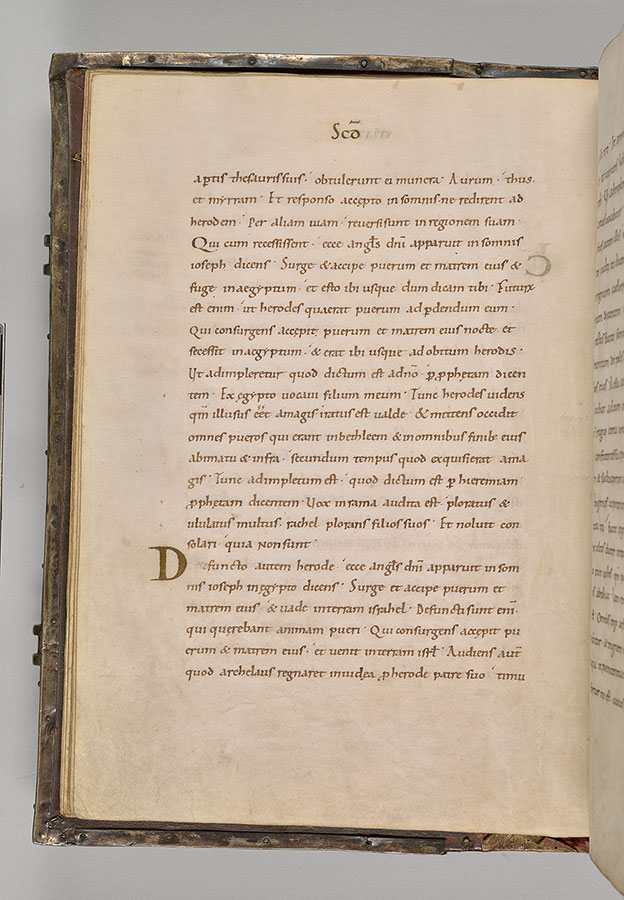 Scd̄
aptis thesauris suis · obtulerunt ei munera · Aurum · thus ·
et myrram · Et responso accepto in somnis · ne redirent ad
herodem · Per aliam uiam reuersi sunt in regionem suam ·
Qui cum recessissent · ecce angl̄s dn̄i apparuit in somnis
ioseph dicens · Surge & accipe puerum et matrem eius &
fuge in aegyptum · et esto ibi usque dum dicam tibi · Futurū
est enim · ut herodes quaerat puerum ad ꝑdendum eum ·
Qui consurgens accepit puerum et matrem eius nocte · et
secessit in aegyptum · & erat ibi usque ad obitum herodis ·
Ut adimpleretur quod dictum est a dn̄o · ꝑ ꝓphetam dicen
tem · Ex egypto uocaui filium meum · Tunc herodes uidens
qm̄ illusus eēt a magis iratus est ualde · & mittens occidit
omnes pueros qui erant in bethleem & in omnibus finib; eius
a bimatu & infra · secundum tempus quod exquisierat a ma
gis · Tunc adimpletum est · quod dictum est ꝑ hieremiam
ꝓphetam dicentem · Uox in rama audita est · ploratus &
ululatus multus · rachel plorans filios suos · Et noluit con
solari · quia non sunt ·
Defuncto autem herode · ecce angl̄s dn̄i apparuit in som
nis ioseph in egypto dicens · Surge et accipe puerum et
matrem eius · & uade in terram israhel · Defuncti sunt eni̅ ·
qui querebant animam pueri · Qui consurgens accepit pu
erum & matrem eius · et uenit in terram isrl̄ · Audiens aut̄
quod archelaus regnaret in iudea ꝓ herode patre suo · timu